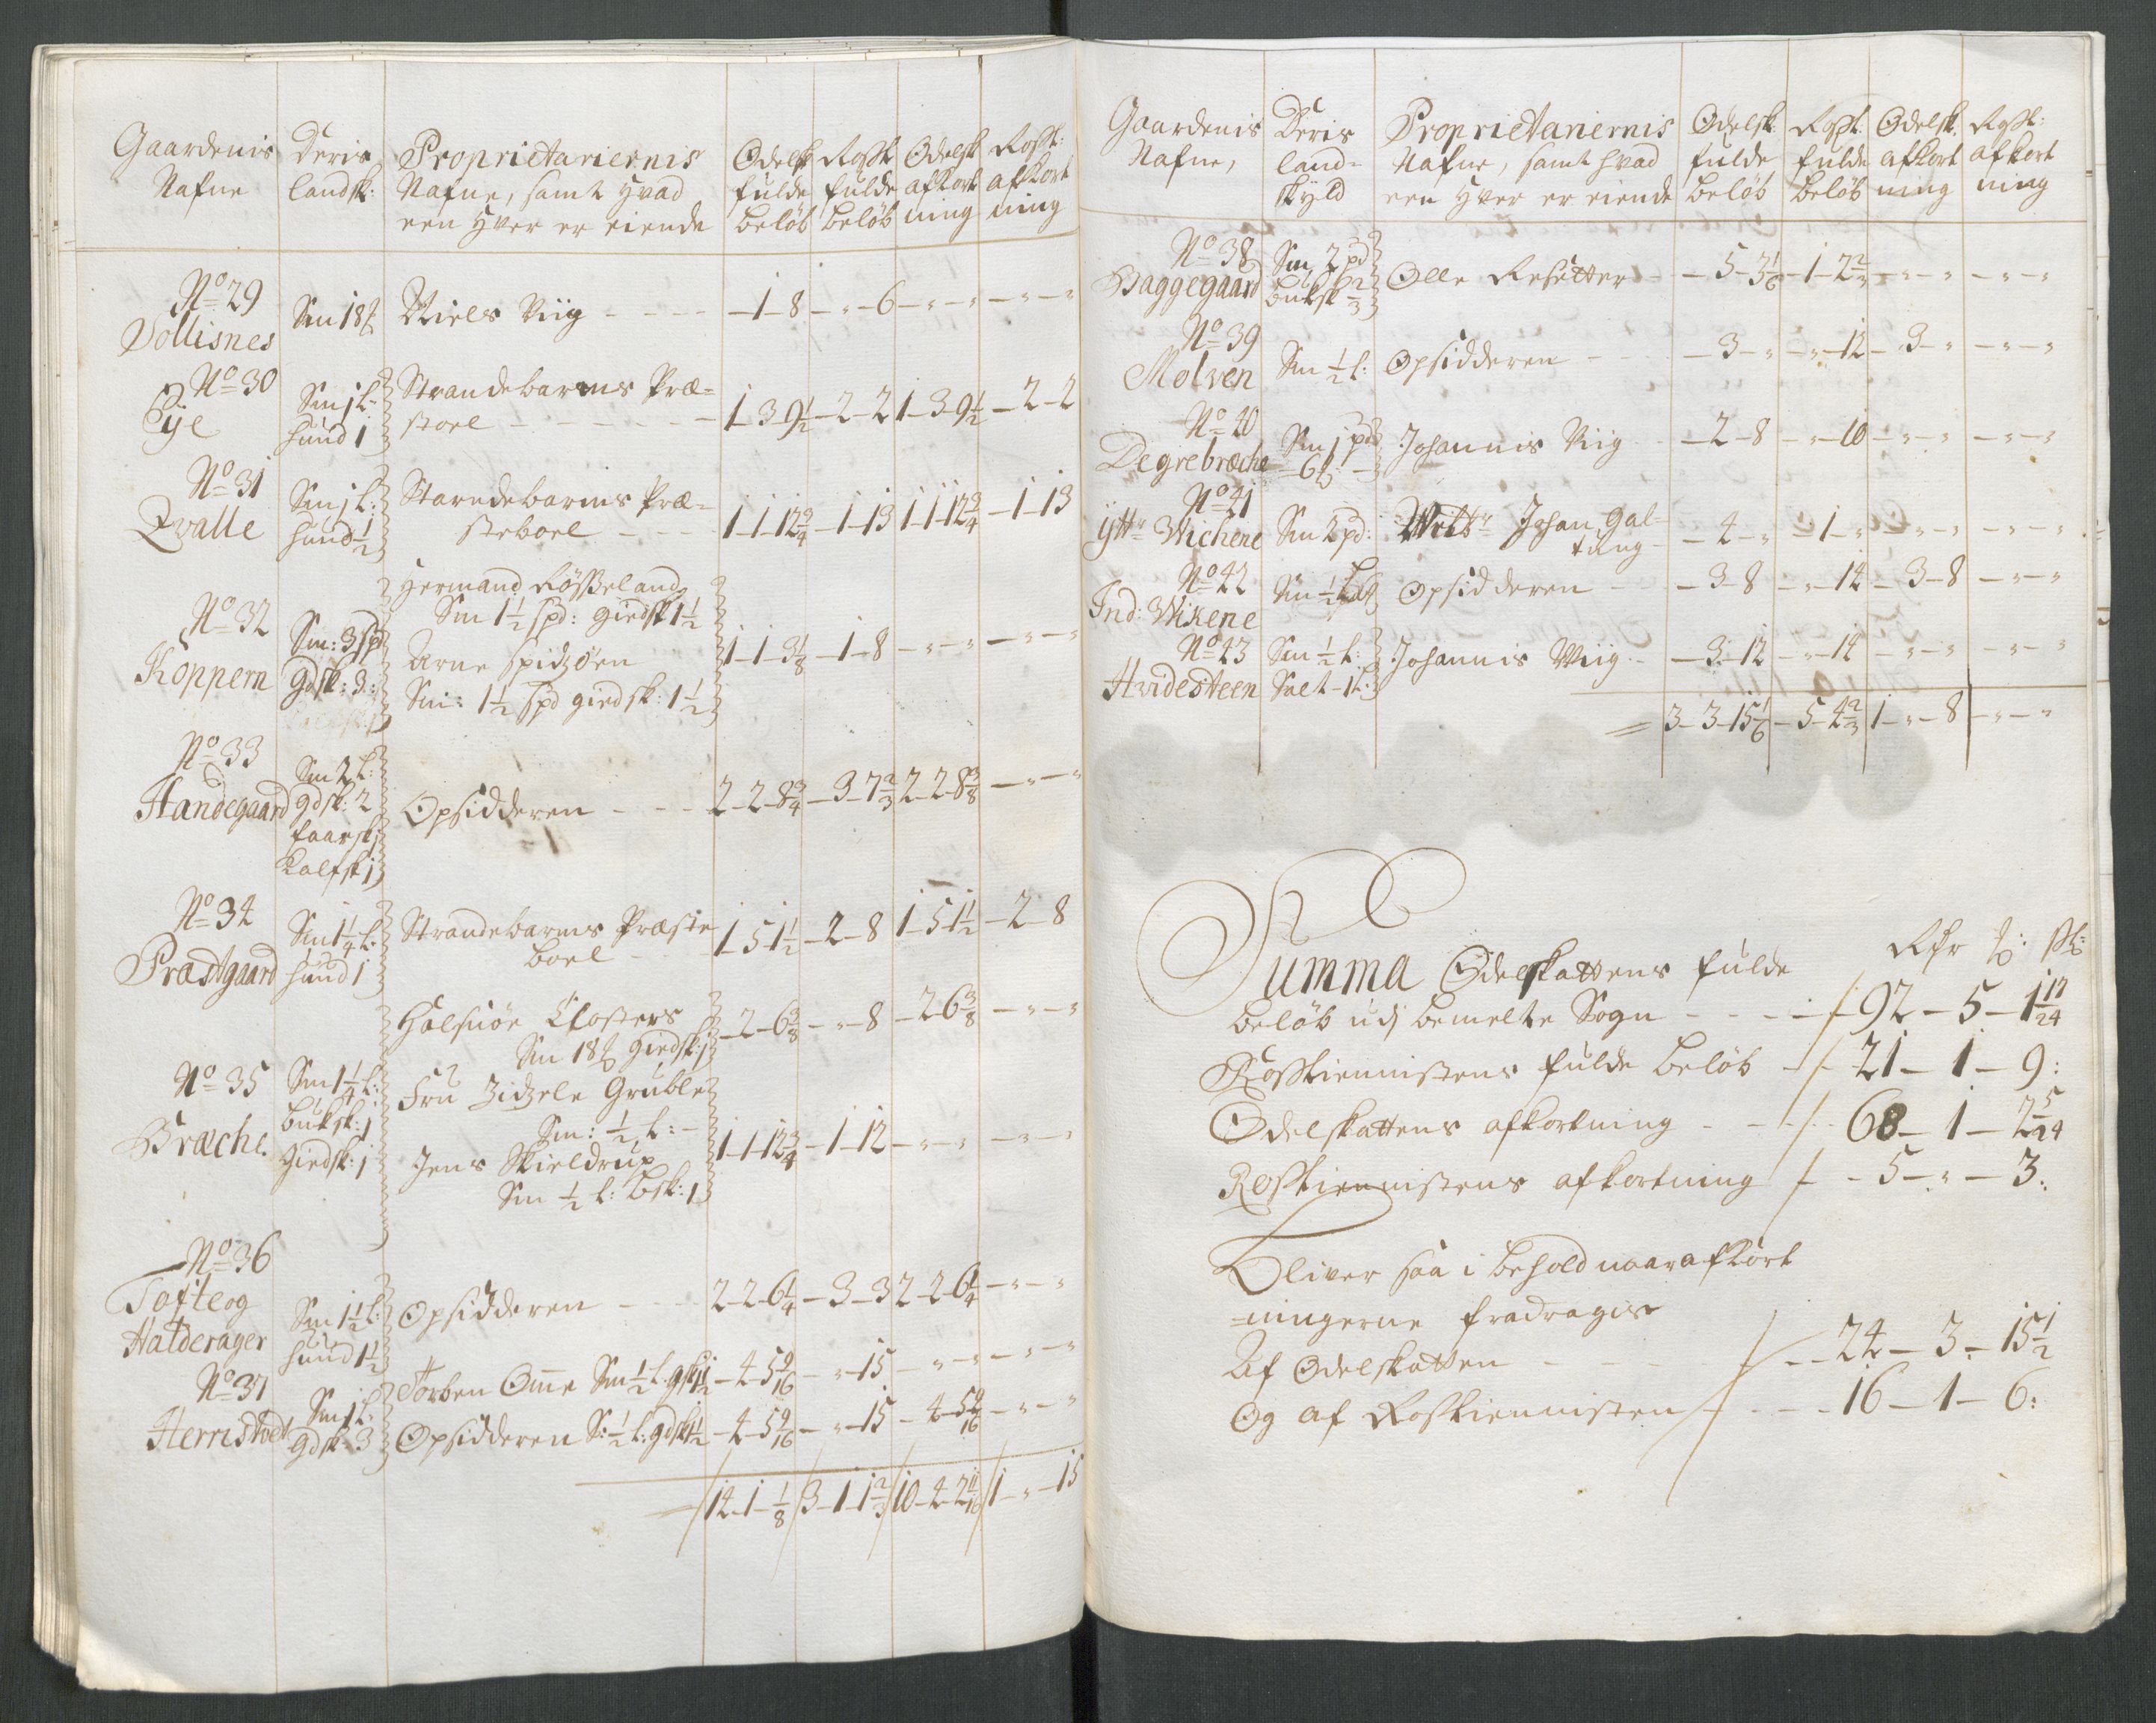 Gaardenis Deris Proprietariernis Odelsk Rosstk Odelsk Rosstk:
Nafne landsk: Nafne, samt hvad fulde fulde afkort afkort
een hver er eiende beløb beløb ning ning
No 29 Vollisnes Sm 18 Niels Viig - 1 - 8 - " - 6 - " - " - " - "
No 30 Øye Sm 1 l: Strandebarms Præ=
hund 1 stoel 1 - 3 - 9½ - 2 - 2 1 - 3 - 9½ - 2 - 2
No 31 Qvalle Sm 1 l: Starndebarms Præ=
hund ½ steboel 1 - 1 - 12¾ - 1 - 13 1 - 1 - 12¾ - 1 - 13
Hermand Røsseland
No 32 Sm: 3 spd Sm 1½ spd: giedsk 1½
Koppern gdsk: 3: Arne Spidzøen 1 - 1 - 3⅛ - 1 - 8 - " - " - " - "
Sm: 1½ spd giedsk: 1½
No 33 Sm 2 l:
Handegaard gdsk: 2 Opsidderen 2 - 2 - 8¾ - 3 - 7⅔ 2 - 2 - 8⅜ - " - "
faarsk 1
Kalfsk 1
No 34 Sm 1¼ l: Strandebarms Præste
Præstgaard hund 1 boel 1 - 5 - 1½ - 2 - 8 1 - 5 - 1½ - 2 - 8
Halsnöe Closters - 2 - 6⅜ - " - 8 - 2 - 6⅜ - " - "
Sm 18 giedsk: 1
No 35 Sm 1¼ l: Fru Zidzele Gruble
Bræche buksk: 1 Sm: ½ l:
giedsk: 1 Jens Skieldrup 1 - 1 - 12¾ - 1 - 12 - " - " - " - "
Sm ½ l: bsk: 1
No 36
Tofte og Sm 1½ l: Opsidderen 2 - 2 - 6¼ - 3 - 3 2 - 2 - 6¼ - " - "
Halderager hund 1½
No 37 Sm 1 l: Torben Ome Sm ½ l. gsk 1½ - 4 - 5 9/16 - " - 15 - " - " - " - "
Herristvet gdsk: 3 Opsidderen S: ½ l: gdsk 1½ - 4 - 5 9/16 - " - 15 - 4 - 5 9/16 - " - "
14 - 1 - ⅛ 3 - 1 - 1⅔ 10 - 4 - 2 11/16 1 - " - 15
Gaardenis Deris Proprietariernis Odelsk. Rosstk. Odelsk. Rosstk:
Nafne, land= Nafne, samt hvad fulde fulde afkort afkort
skyld een hver er eiende beløb beløb ning ning
No 38 Sm 2 pd
Baggegaard buksk ⅔ Olle Resetter - 5 - 3⅙ - 1 - 2⅔ - " - " - " - "
No 39
Molven Sm ½ l: Opsidderen - 3 - " - " - 12 - 3 - " - " - "
No 40 Sm 1 pd
Degrebræche 6 Johannis Viig - 2 - 8 - " - 10 - " - " - " - "
No 41
ytt: Wichene Sm 2 pd: Welb: Johan Gal=
tung - 4 - " - 1 - " - " - " - " - "
No 42 Sm ½ Opsidderen - 3 - 8 - " - 14 - 3 - 8 - " - "
Ind: Wikene
No 43 Sm ½ l: Johannis Wiig - 3 - 12 - " - 14 - " - " - " - "
Hvidesteen Salt - 1 l:
= 3 - 3 - 15⅙ - 5 - 4⅔ 1 - " - 8 - " - "
Rdr sk:
Summa Odelskattens fulde
beløb udj bemelte Sogn 92 - 5 - 1 17/24
Rosstiennistens fulde beløb 21 - 1 - 9:
Odelskattens afkortning 68 - 1 - 2 5/24
Rosstiennistens afkortning - 5 - " - 3:
Bliver saa i behold naar afkort
=ningerne fradragis
Af Odelskatten 24 - 3 - 15½
Og af Rosstiennisten 16 - 1 - 6: